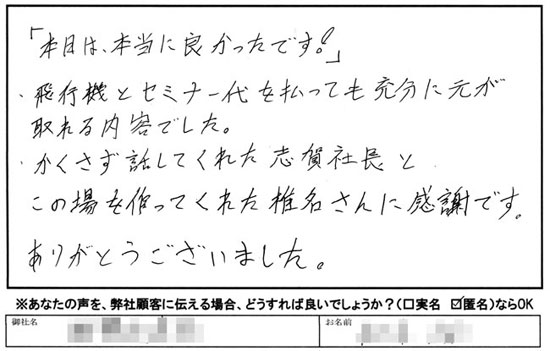 「本日は、本当に良かったです!」
・飛行機とセミナー代を払っても充分に元が
取れる内容でした。
・かくさず話してくれた志賀社長と
この場を作ってくれた椎名さんに感謝です。
ありがとうございました。
※あなたの声を、弊社顧客に伝える場合、どうすれば良いでしょうか?(□実名 ☑匿名)ならOK
御社名
お名前